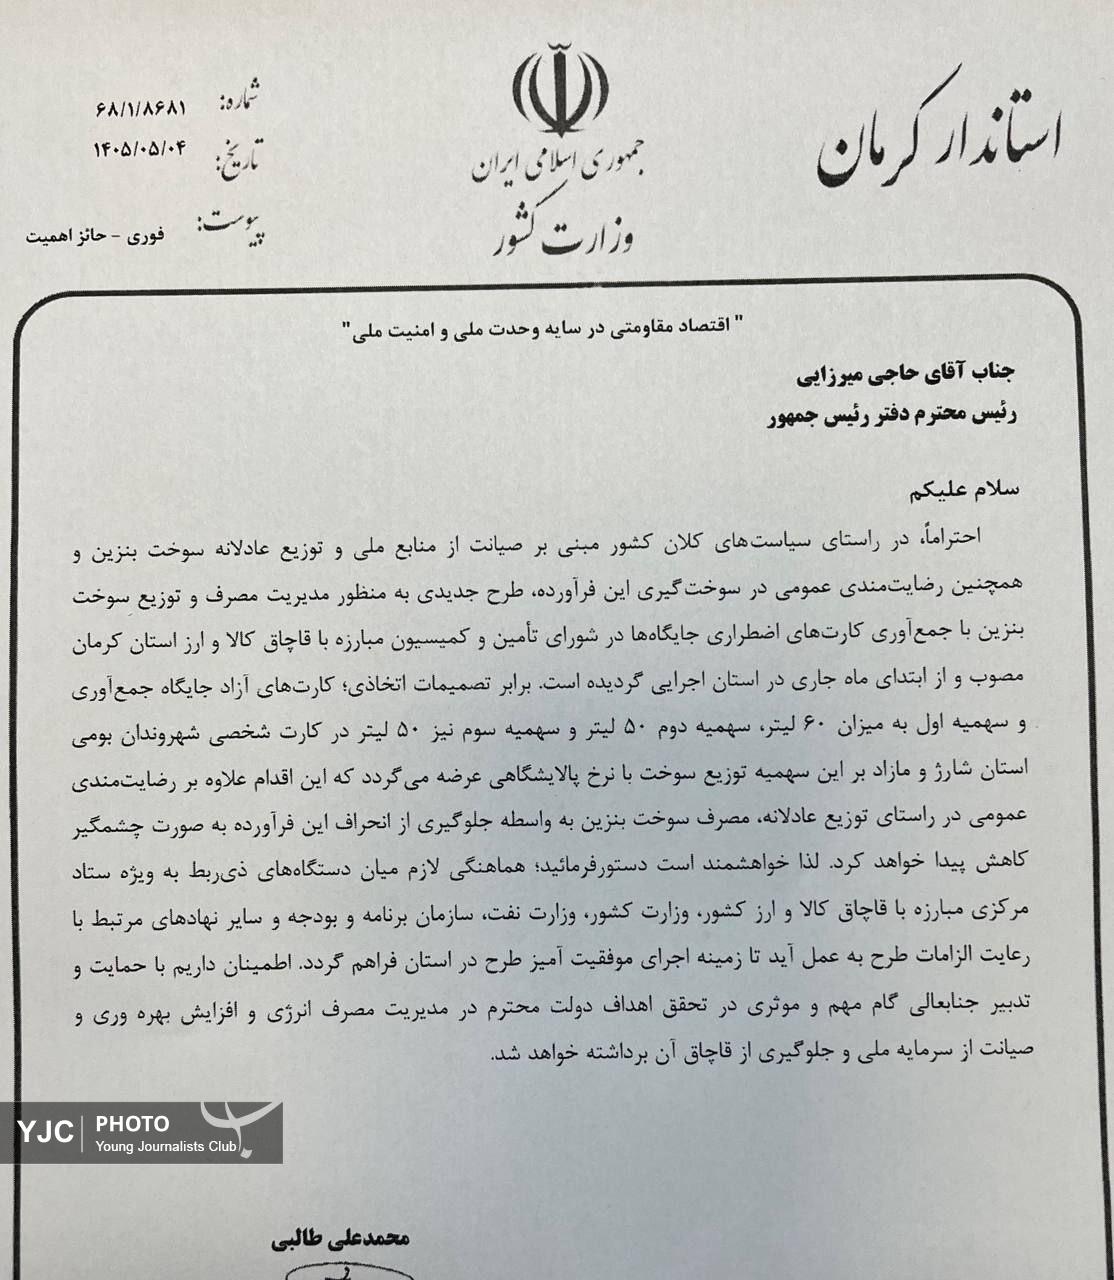 استاندار کرمان
جمهوری اسلامی ایران
وزارت کشور
شماره: ۶۸/۱/۸۶۸۱
تاریخ: ۱۴۰۵/۰۵/۰۴
پیوست: فوری - حائز اهمیت
" اقتصاد مقاومتی در سایه وحدت ملی و امنیت ملی"
جناب آقای حاجی میرزایی
رئیس محترم دفتر رئیس جمهور
سلام علیکم
احتراماً، در راستای سیاست‌های کلان کشور مبنی بر صیانت از منابع ملی و توزیع عادلانه سوخت بنزین و
همچنین رضایت‌مندی عمومی در سوخت‌گیری این فرآورده، طرح جدیدی به منظور مدیریت مصرف و توزیع سوخت
بنزین با جمع‌آوری کارت‌های اضطراری جایگاه‌ها در شورای تأمین و کمیسیون مبارزه با قاچاق کالا و ارز استان کرمان
مصوب و از ابتدای ماه جاری در استان اجرایی گردیده است. برابر تصمیمات اتخاذی؛ کارت‌های آزاد جایگاه جمع‌آوری
و سهمیه اول به میزان ۶۰ لیتر، سهمیه دوم ۵۰ لیتر و سهمیه سوم نیز ۵۰ لیتر در کارت شخصی شهروندان بومی
استان شارژ و مازاد بر این سهمیه توزیع سوخت با نرخ پالایشگاهی عرضه می‌گردد که این اقدام علاوه بر رضایت‌مندی
عمومی در راستای توزیع عادلانه، مصرف سوخت بنزین به واسطه جلوگیری از انحراف این فرآورده به صورت چشمگیر
کاهش پیدا خواهد کرد. لذا خواهشمند است دستورفرمائید؛ هماهنگی لازم میان دستگاه‌های ذی‌ربط به ویژه ستاد
مرکزی مبارزه با قاچاق کالا و ارز کشور، وزارت کشور، وزارت نفت، سازمان برنامه و بودجه و سایر نهادهای مرتبط با
رعایت الزامات طرح به عمل آید تا زمینه اجرای موفقیت آمیز طرح در استان فراهم گردد. اطمینان داریم با حمایت و
تدبیر جنابعالی گام مهم و موثری در تحقق اهداف دولت محترم در مدیریت مصرف انرژی و افزایش بهره وری و
صیانت از سرمایه ملی و جلوگیری از قاچاق آن برداشته خواهد شد.
YJC PHOTO
Young Journalists Club
محمدعلی طالبی